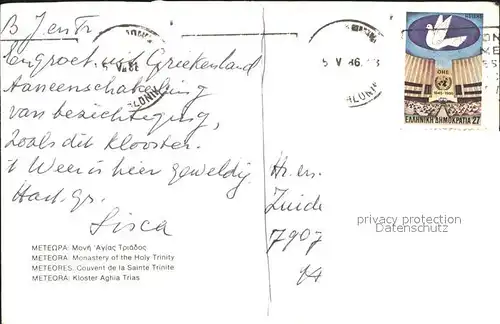 B Jentr
Engroet. uit Griekenland
Aaneenschakeling
van bezichtiging,
Zoals dit Klooster.
't Weer is hier geweldig
Hart. gr.
Sisca
ΜΕΤΕΩΡΑ: Μονή Ἁγίας Τριάδος
METEORA: Monastery of the Holy Trinity
METEORES: Couvent de la Sainte Trinité
METEORA: Kloster Aghia Trias
5 V 86
ΑLONIK
HELLAS
ΟΗΕ
1945-1985
ΕΛΛΗΝΙΚΗ ΔΗΜΟΚΡΑΤΙΑ 27
Hr. en
Zuide
7907
privacy protection
Datenschutz